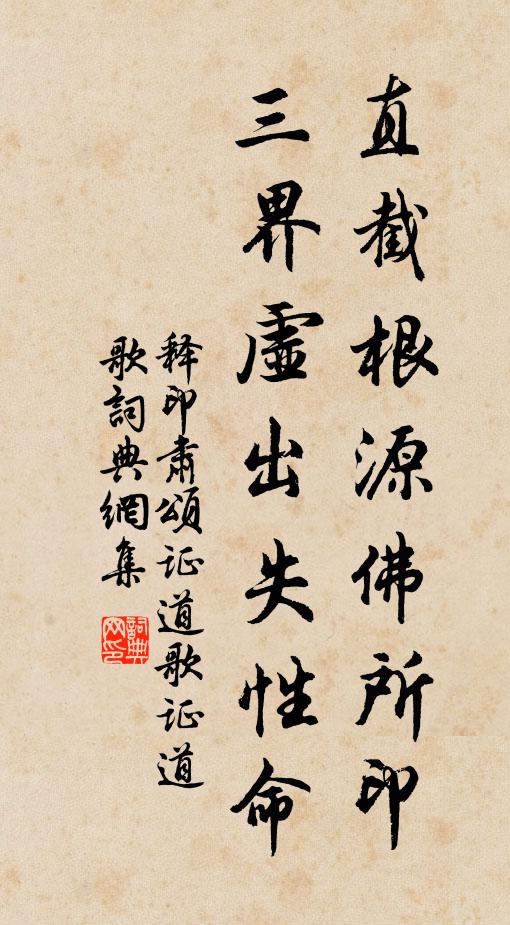 直截根源佛所印
三界虛出失性命
释印肃頌证道歌证道
歌詞典網集
詞典
网印